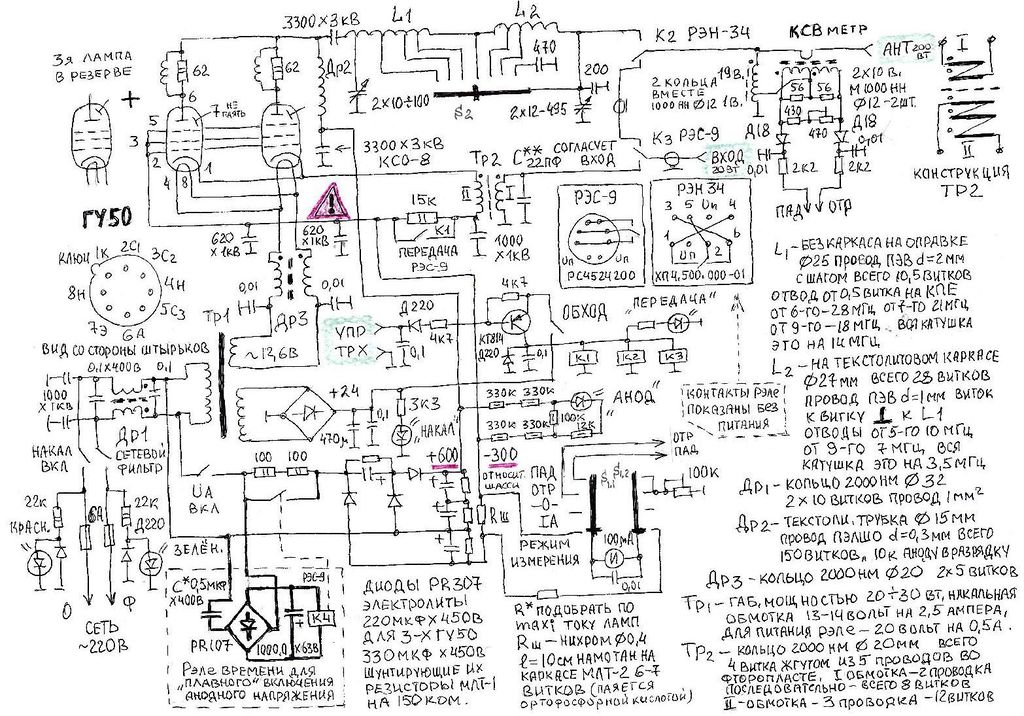 3я ЛАМПА
В РЕЗЕРВЕ
62
62
6
7
НЕ
ПАЯТЬ
5
3
2
4
8
1
ГУ50
3300×3кВ
L1
L2
ДР2
2×10÷100
S2
470
2×12-495
200
3300×3кВ
КСО-8
К2 РЭН-34
2 КОЛЬЦА
ВМЕСТЕ
1000НН Ф12 1В.
19В.
КСВ МЕТР
АНТ 200
ВТ
2×10В.
М1000НН
Ф12-2ШТ.
56
56
430
470
Д18
Д18
0,01
0,01
2К2
2К2
ПАД
ОТР
I
II
КОНСТРУКЦИЯ
ТР2
К3 РЭС-9
ВХОД
20ВТ
ТР2
С** СОГЛАСУЕТ
22ПФ ВХОД
II
I
1000
×1кВ
15К
К1
ПЕРЕДАЧА
РЭС-9
620
×1кВ
620
×1кВ
РЭС-9
Uп
РС4524200
РЭН 34
3 5 Uп 4
1 Uп 2 6
ХП4,500.000-01
КЛЮЧ
1К
2С1
3С2
4Н
5С3
6А
7Э
8Н
ВИД СО СТОРОНЫ ШТЫРЬКОВ
0,01
0,01
ТР1
ДР3
~12,6В
УПР
ТРХ
Д220
4К7
0,1
4К7
КТ814
Д220
0,1
ОБХОД
„ПЕРЕДАЧА"
К1
К2
К3
КОНТАКТЫ РЭЛЕ
ПОКАЗАНЫ БЕЗ
ПИТАНИЯ
0,1×400В
0,1
1000
×1кВ
ДР1
СЕТЕВОЙ
ФИЛЬТР
НАКАЛ
ВКЛ
22К
КРАСН.
6А
22К
Д220
ЗЕЛЁН.
0
Ф
СЕТЬ
~220В
+24
470м
0,1
3К3
„НАКАЛ"
330К
330К
330К
330К
100К
12К
„АНОД"
UА
ВКЛ
100
100
+600
-300
ОТНОСИТ.
ШАССИ
Rш
ОТР
ПАД
ПАД
ОТР
-0-
IА
РЕЖИМ
ИЗМЕРЕНИЯ
S1,1
S1,2
100К
100μА
0,01
С*0,5МКФ
×400В
PR107
1000,0
×63В
РЭС-9
К4
РЕЛЕ ВРЕМЕНИ ДЛЯ
„ПЛАВНОГО" ВКЛЮЧЕНИЯ
АНОДНОГО НАПРЯЖЕНИЯ
ДИОДЫ PR307
ЭЛЕКТРОЛИТЫ
220МКФ×450В
ДЛЯ 3-Х ГУ50
330МКФ×450В
ШУНТИРУЮЩИЕ ИХ
РЕЗИСТОРЫ МЛТ-1
НА 150КОМ.
R* ПОДОБРАТЬ ПО
maxi ТОКУ ЛАМП
Rш-НИХРОМ Ф0,4
ℓ=10см НАМОТАН НА
КАРКАСЕ МЛТ-2 6-7
ВИТКОВ (ПАЯЕТСЯ
ОРТОФОСФОРНОЙ КИСЛОТОЙ)
L1-БЕЗ КАРКАСА НА ОПРАВКЕ
Ф25 ПРОВОД ПЭВ d=2мм
С ШАГОМ ВСЕГО 10,5 ВИТКОВ
ОТВОД ОТ 0,5 ВИТКА НА КПЕ
ОТ 6-ГО-28МГЦ ОТ 7-ГО 21МГЦ
ОТ 9-ГО-18МГЦ ВСЯ КАТУШКА
ЭТО НА 14МГЦ.
L2-НА ТЕКСТОЛИТОВОМ КАРКАСЕ
Ф27мм ВСЕГО 28 ВИТКОВ
ПРОВОД ПЭВ d=1мм ВИТОК
К ВИТКУ ⊥ К L1
ОТВОДЫ ОТ 5-ГО 10МГЦ
ОТ 9-ГО 7МГЦ, ВСЯ
КАТУШКА ЭТО НА 3,5МГЦ
ДР1-КОЛЬЦО 2000НМ Ф32
2×10 ВИТКОВ ПРОВОД 1мм²
ДР2-ТЕКСТОЛИ. ТРУБКА Ф15мм
ПРОВОД ПЭЛШО d=0,3мм ВСЕГО
150ВИТКОВ, 10К АНОДУ ВРАЗРЯДКУ
ДР3-КОЛЬЦО 2000НМ Ф20 2×5 ВИТКОВ
ТР1-ГАБ, МОЩНОСТЬЮ 20÷30 ВТ, НАКАЛЬНАЯ
ОБМОТКА 13-14 ВОЛЬТ НА 2,5 АМПЕРА,
ДЛЯ ПИТАНИЯ РЭЛЕ-20 ВОЛЬТ НА 0,5А.
ТР2-КОЛЬЦО 2000 НМ Ф20мм ВСЕГО
4 ВИТКА ЖГУТОМ ИЗ 5 ПРОВОДОВ ВО
ФТОРОПЛАСТЕ, I ОБМОТКА-2 ПРОВОДКА
ПОСЛЕДОВАТЕЛЬНО-ВСЕГО 8 ВИТКОВ
II-ОБМОТКА-3 ПРОВОДКА-12 ВИТКОВ